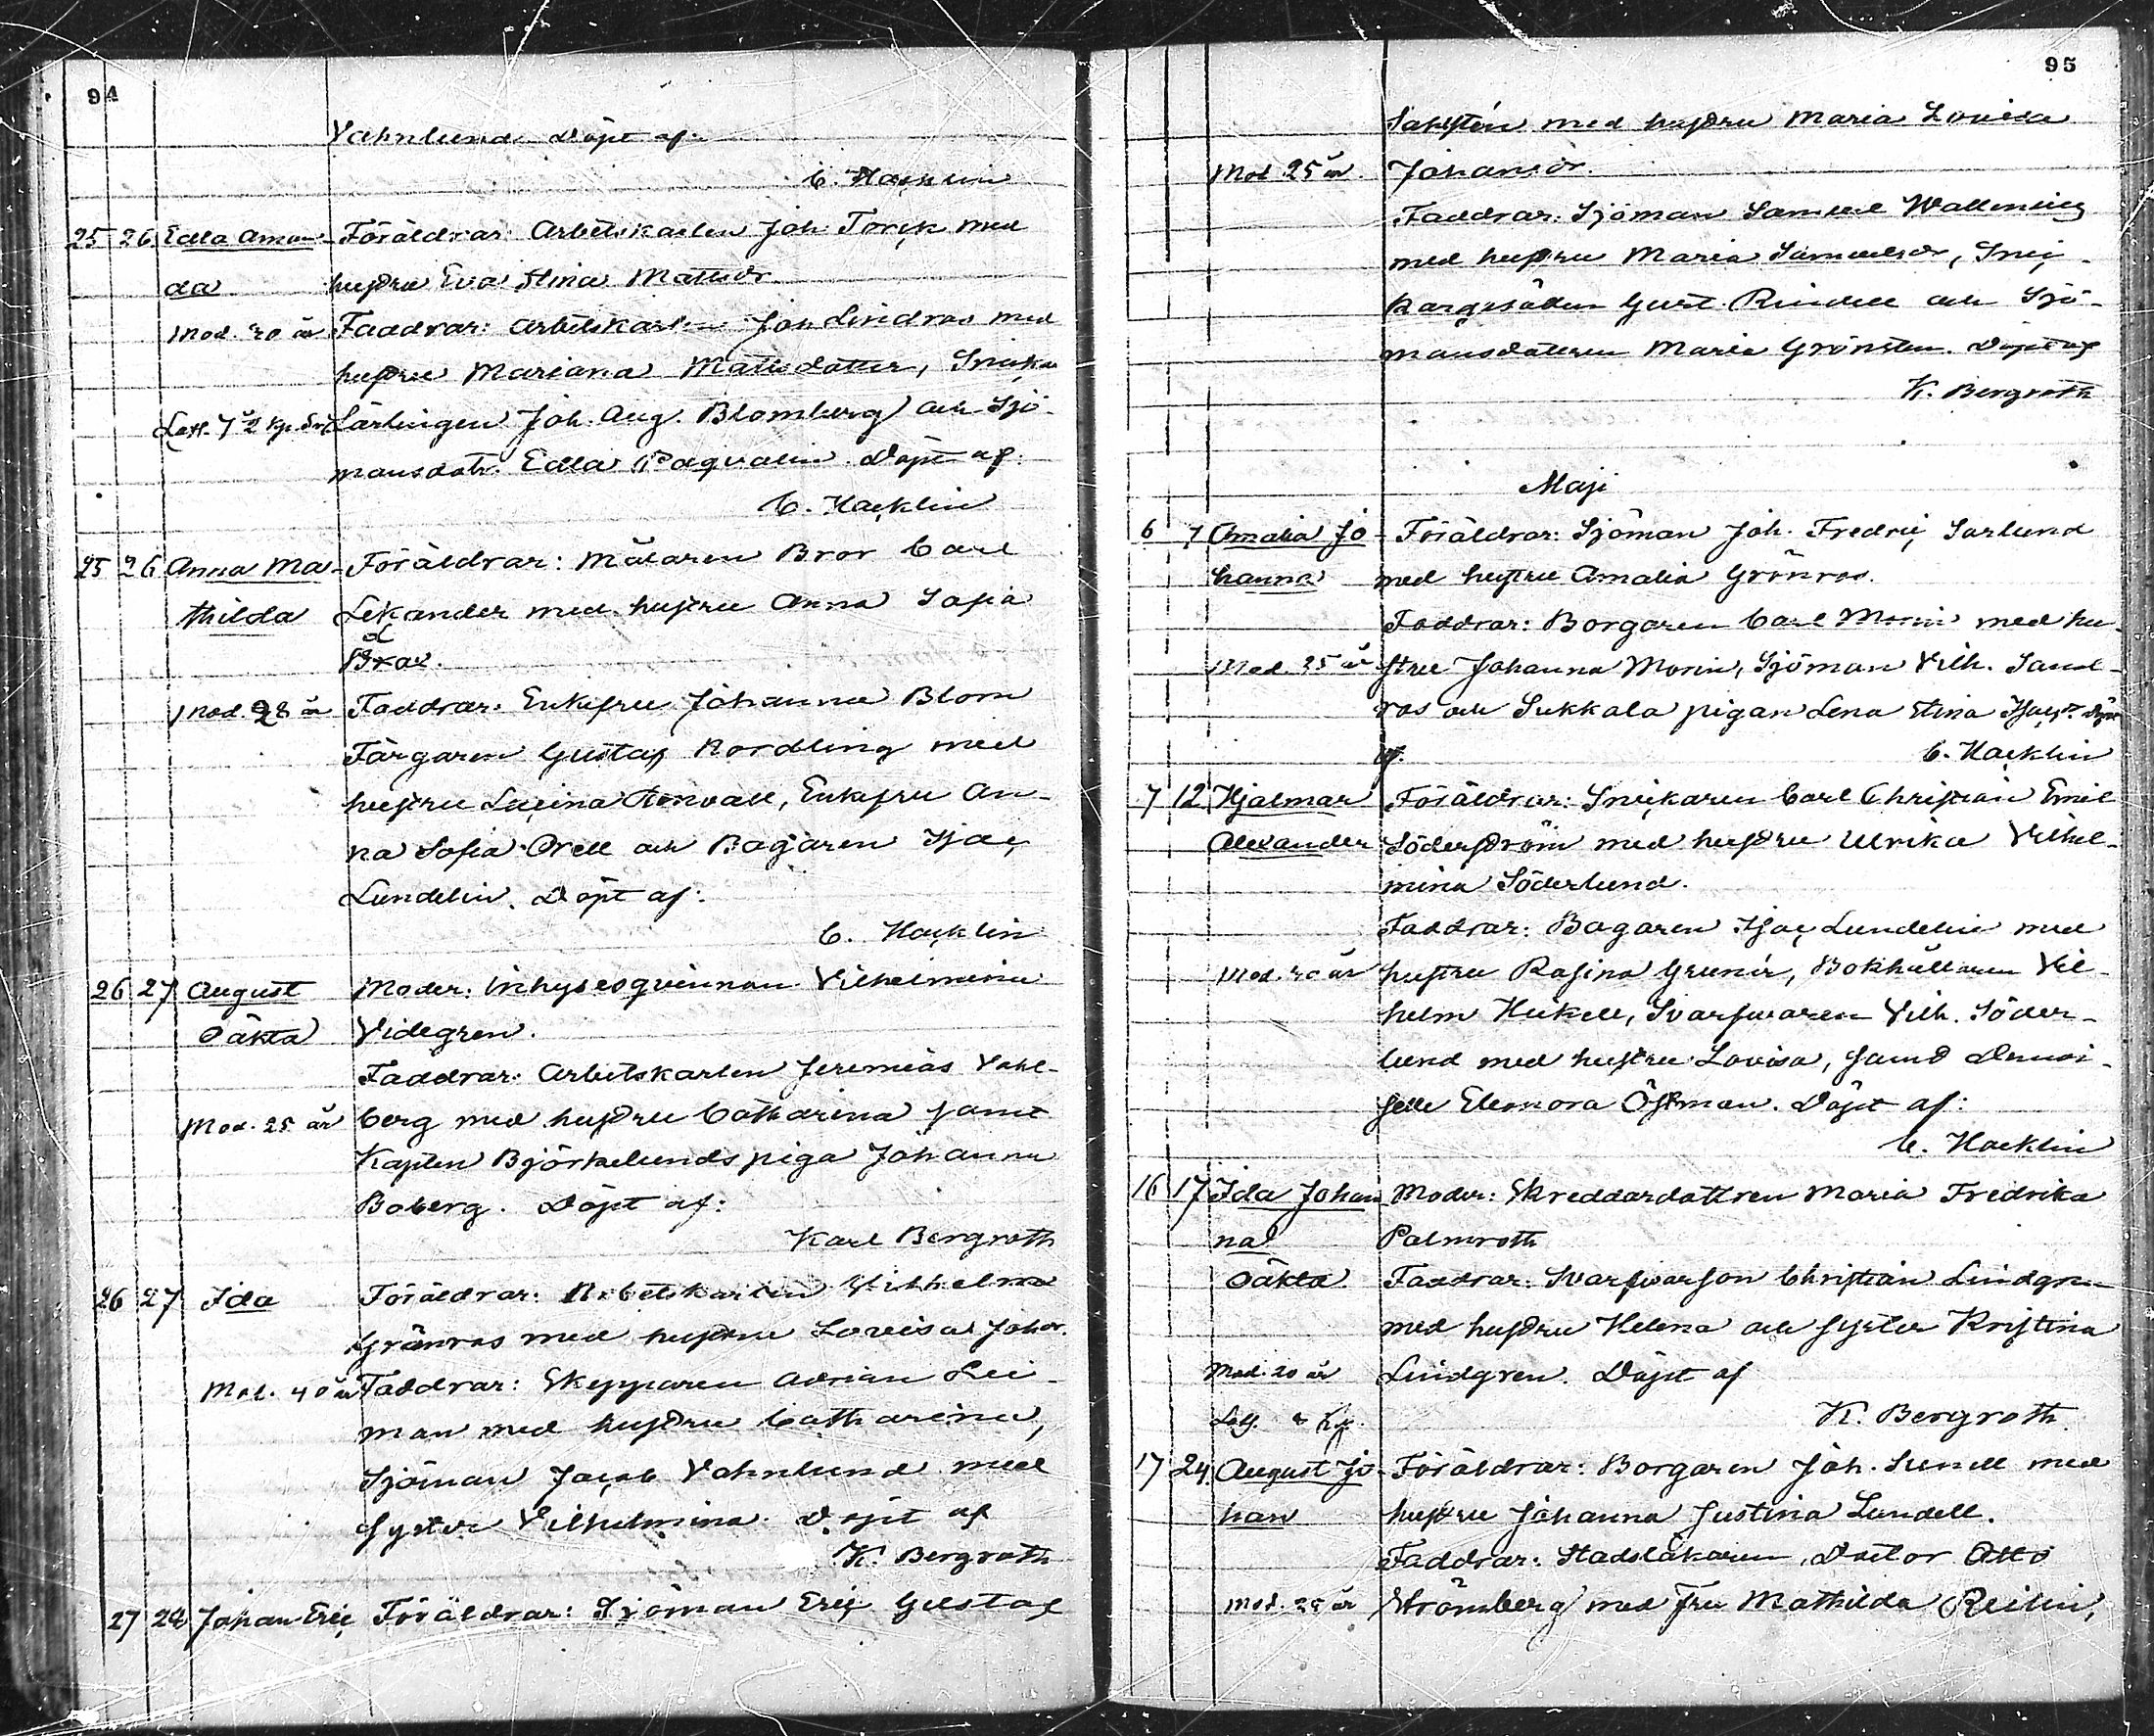 94
Vahnlund. Döpt af:
C. Hacklin
25 26 Edla Aman- Föräldrar: Arbetskarlen Joh. Torck med
da hustru Eva Stina Mattsdr.
Mod. 20 år Faddrar: Arbetskarlen Joh Lindros med
hustru Mariana Matsdotter, Snicka
Lärlingen Joh. Aug. Blomberg och Sjö-
mansdotr. Edla Paqvalin. Döpt af:
C. Hacklin
25 26 Anna Ma- Föräldrar: Målaren Bror Carl
thilda Lekander med hustru Anna Sofia
Mod. 28 år Faddrar: Enkefru Johanna Blom
Färgaren Gustaf Nordling med
hustru Lucina Rönvall, Enkefru An-
na Sofia Orell och Bagaren Isac
Lundelin. Döpt af:
C. Hacklin
26 27 August Moder: Inhysesqvinnan Vilhelmina
Oäkta Videgren.
Faddrar: Arbetskarlen Jeremias Vahl-
Mod. 25 år berg med hustru Catharina samt
Kapten Björkelunds piga Johanna
Boberg. Döpt af:
Karl Bergroth
26 27 Ida Föräldrar: Arbetskarlen Vilhelm
Grönros med hustru Lovisa Johdr.
Mod. 40 år Faddrar: Skepparen Adrian Rei-
man med hustru Catharina,
Sjöman Jacob Vahnlund med
syster Vilhelmina. Döpt af
K. Bergroth
27 28 Johan Eric Föräldrar: Sjöman Eric Gustaf
95
Sahlstén med hustru Maria Lovisa
Mod. 25 år. Johansdr.
Faddrar: Sjöman Samuel Wallenius
med hustru Maria Samuelsdr, Snic-
karegesällen Gust. Rindell och Sjö-
mansdottren Maria Grönsten. Döpt af
K. Bergroth
Maji
6 7 Amalia Jo- Föräldrar: Sjöman Joh. Fredric Sarlund
hanna med hustru Amalia Grönros.
Faddrar: Borgaren Carl Morin med hu-
Mod. 25 år stru Johanna Morin, Sjöman Vilh. Sand-
ros och Sukkala pigan Lena Stina Isacsdr Döpt
af. C. Hacklin
7 12 Hjalmar Föräldrar: Snickaren Carl Christian Emil
Alexander Söderström med hustru Ulrika Vilhel-
mina Söderlund.
Faddrar: Bagaren Isac Lundelin med
Mod. 20 år hustru Rosina Grunér, Bokhållaren Vil-
helm Heikell, Svarfvaren Vilh. Söder-
lund med hustru Lovisa, samt Demoi-
selle Eleonora Östman. Döpt af:
C. Hacklin
16 17 Ida Johan- Moder: Skreddardottren Maria Fredrika
na Palmroth
Oäkta Faddrar: Svarfvarson Christian Lindgren
med hustru Helena och syster Kristina
Mod. 20 år Lindgren. Döpt af
K. Bergroth.
17 24 August Jo- Föräldrar: Borgaren Joh. Sunell med
han hustru Johanna Justina Lundell.
Faddrar: Stadsläkaren, Doctor Otto
Strömberg med fru Mathilda Reilin,